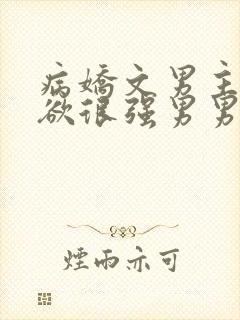 病嬌文男主
欲很强男男
煙雨亦可